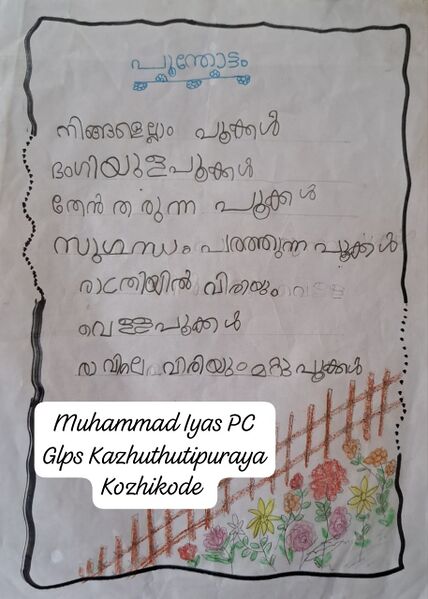 പൂന്തോട്ടം
നിങ്ങളെല്ലാം പൂക്കൾ
ഭംഗിയുളപൂക്കൾ
തേൻ തരുന്ന പൂക്കൾ
സുഗന്ധം പരത്തുന്ന പൂക്കൾ
രാത്രിയിൽ വിരിയും വെള്ള
വെള്ളപൂക്കൾ
രാവിലെ വിരിയും മറ്റു പൂക്കൾ
Muhammad Iyas PC
Glps Kazhuthutipuraya
Kozhikode